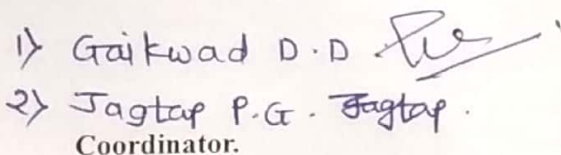 1) Gaikwad D.D.
2) Jagtap P.G. Jagtap.
Coordinator.